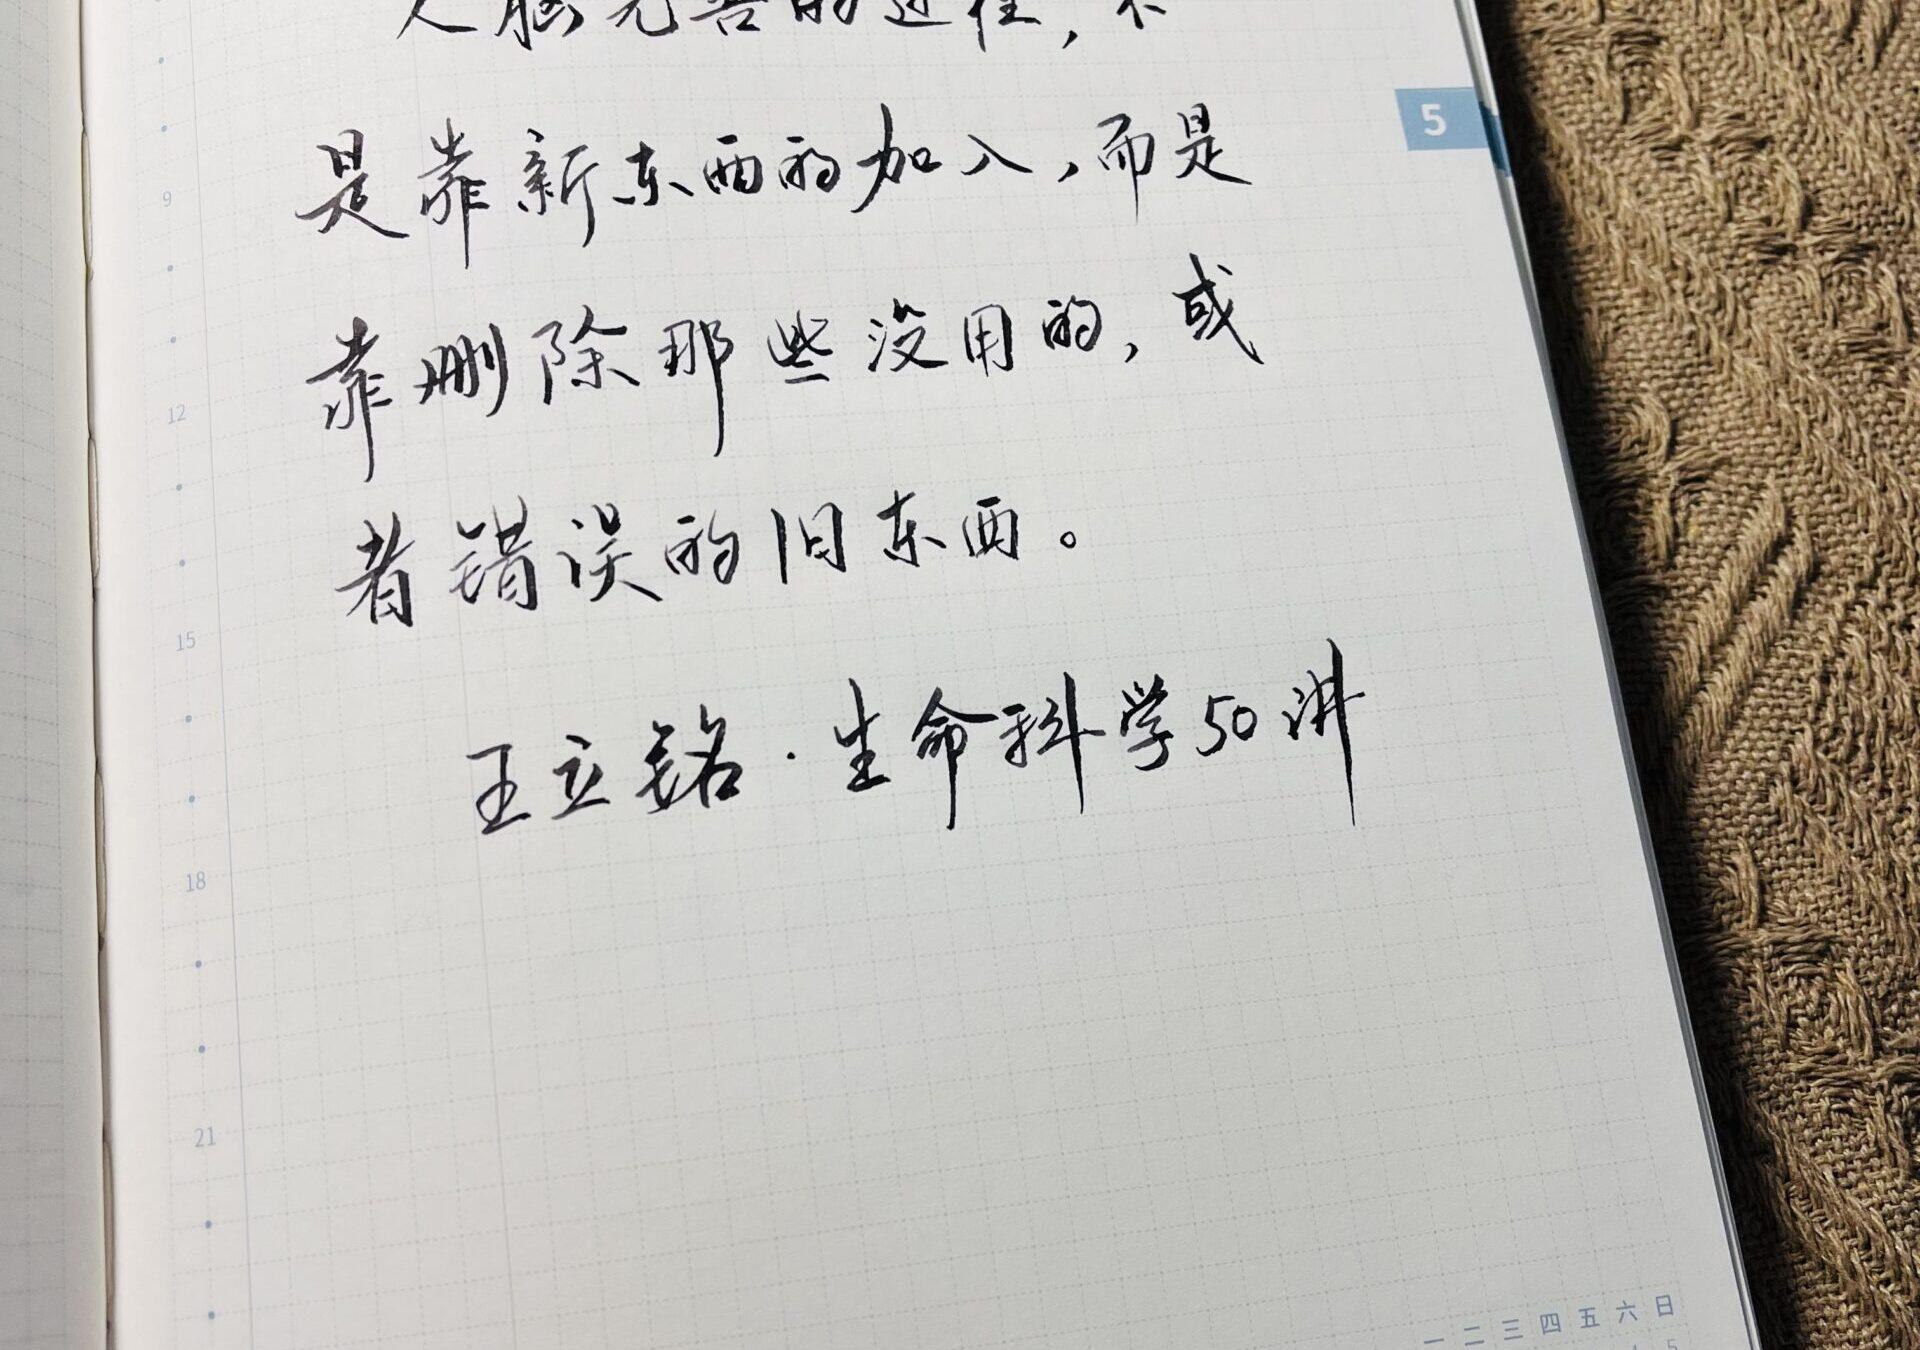 人脑完善的过程，不
5
是靠新东西的加入，而是
9
靠删除那些没用的，或
12
者错误的旧东西。
15
王立铭·生命科学50讲
18
21
一 二 三 四 五 六 日
4 5